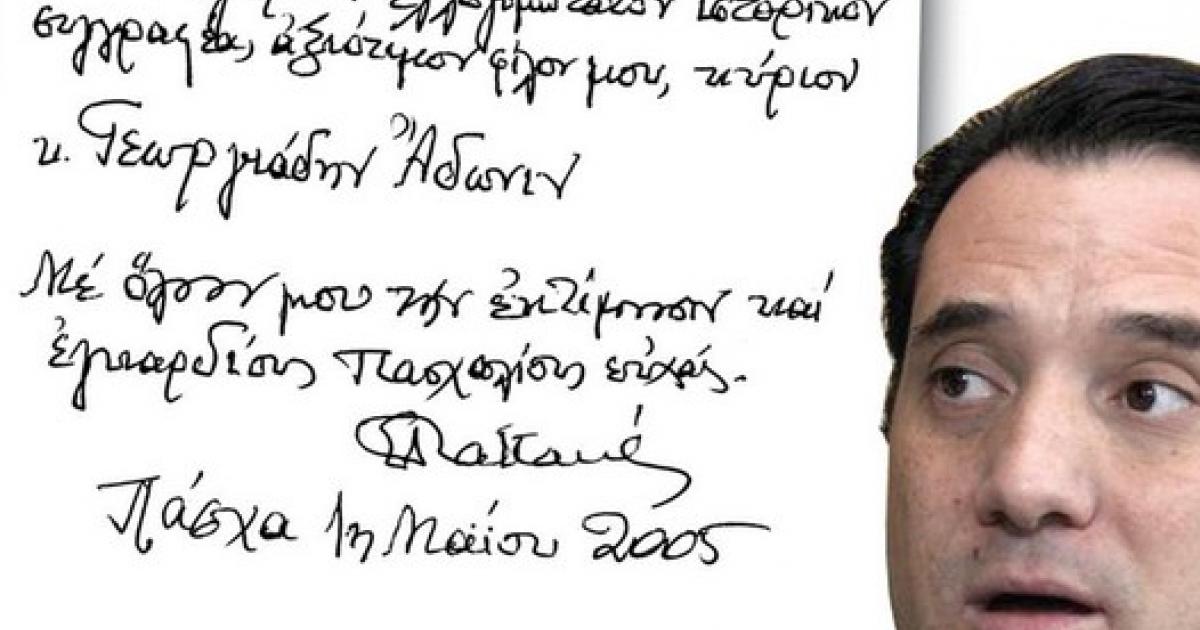 ἐλλογιμώτατον ἱστορικὸν
συγγραφέα, ἀξιότιμον φίλον μου, κύριον
κ. Γεωργιάδην Ἄδωνιν
Μέ ὅλην μου τὴν ἐκτίμησιν καί
ἐγκαρδίους Πασχαλίους εὐχάς.
Πάσχα 1η Μαΐου 2005